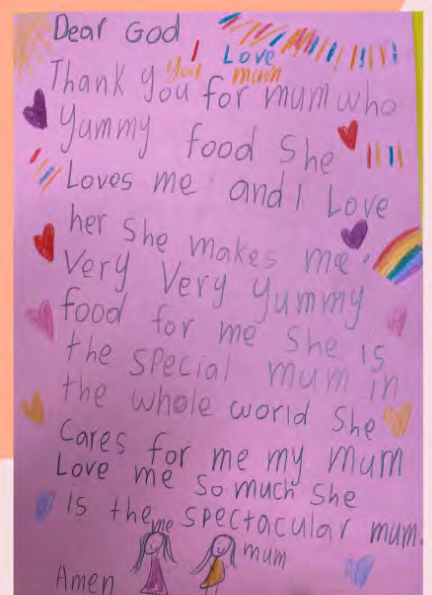 Dear God
I Love You mum
Thank you for mum who
Yummy food She
Loves me and I Love
her She makes me
Very Very Yummy
food for me She is
the special mum in
the whole world She
Cares for me my mum
Love me so much she
is the spectacular mum.
me
mum
Amen